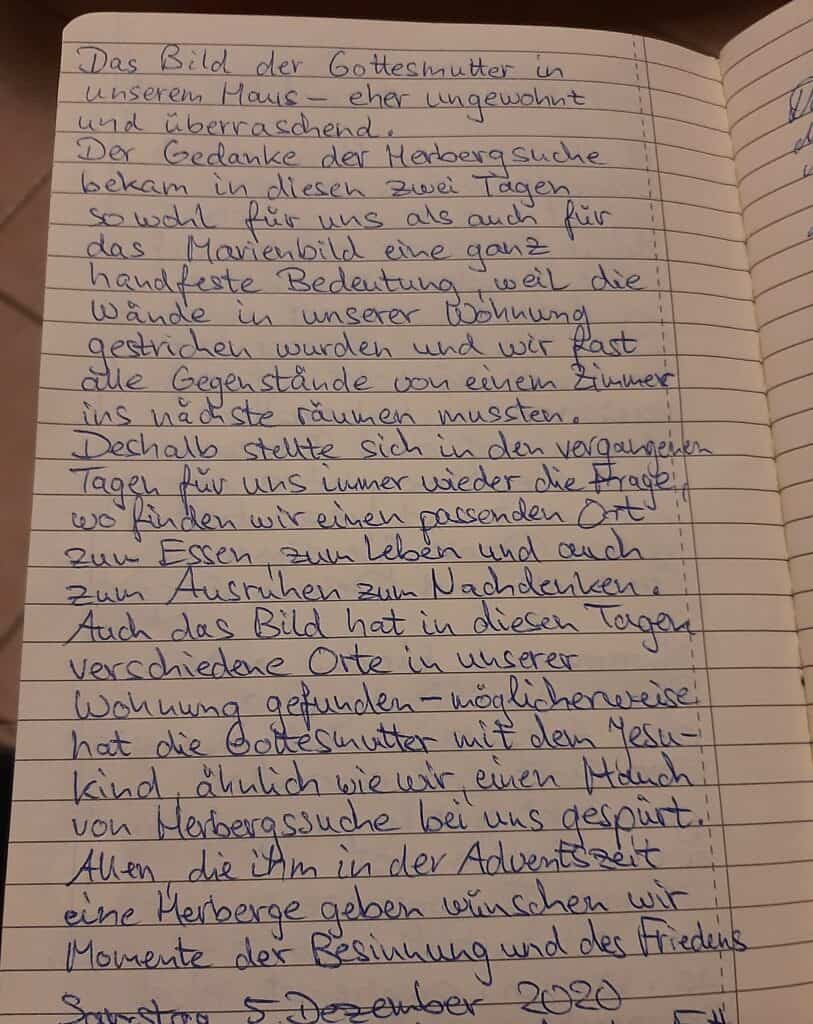 Das Bild der Gottesmutter in
unserem Haus – eher ungewohnt
und überraschend.
Der Gedanke der Herbergsuche
bekam in diesen zwei Tagen
sowohl für uns als auch für
das Marienbild eine ganz
handfeste Bedeutung, weil die
Wände in unserer Wohnung
gestrichen wurden und wir fast
alle Gegenstände von einem Zimmer
ins nächste räumen mussten.
Deshalb stellte sich in den vergangenen
Tagen für uns immer wieder die Frage,
wo finden wir einen passenden Ort
zum Essen, zum Leben und auch
zum Ausruhen zum Nachdenken.
Auch das Bild hat in diesen Tagen
verschiedene Orte in unserer
Wohnung gefunden – möglicherweise
hat die Gottesmutter mit dem Jesu-
kind, ähnlich wie wir, einen Hauch
von Herbergssuche bei uns gespürt.
Allen, die ihm in der Adventszeit
eine Herberge geben wünschen wir
Momente der Besinnung und des Friedens
Samstag 5. Dezember 2020